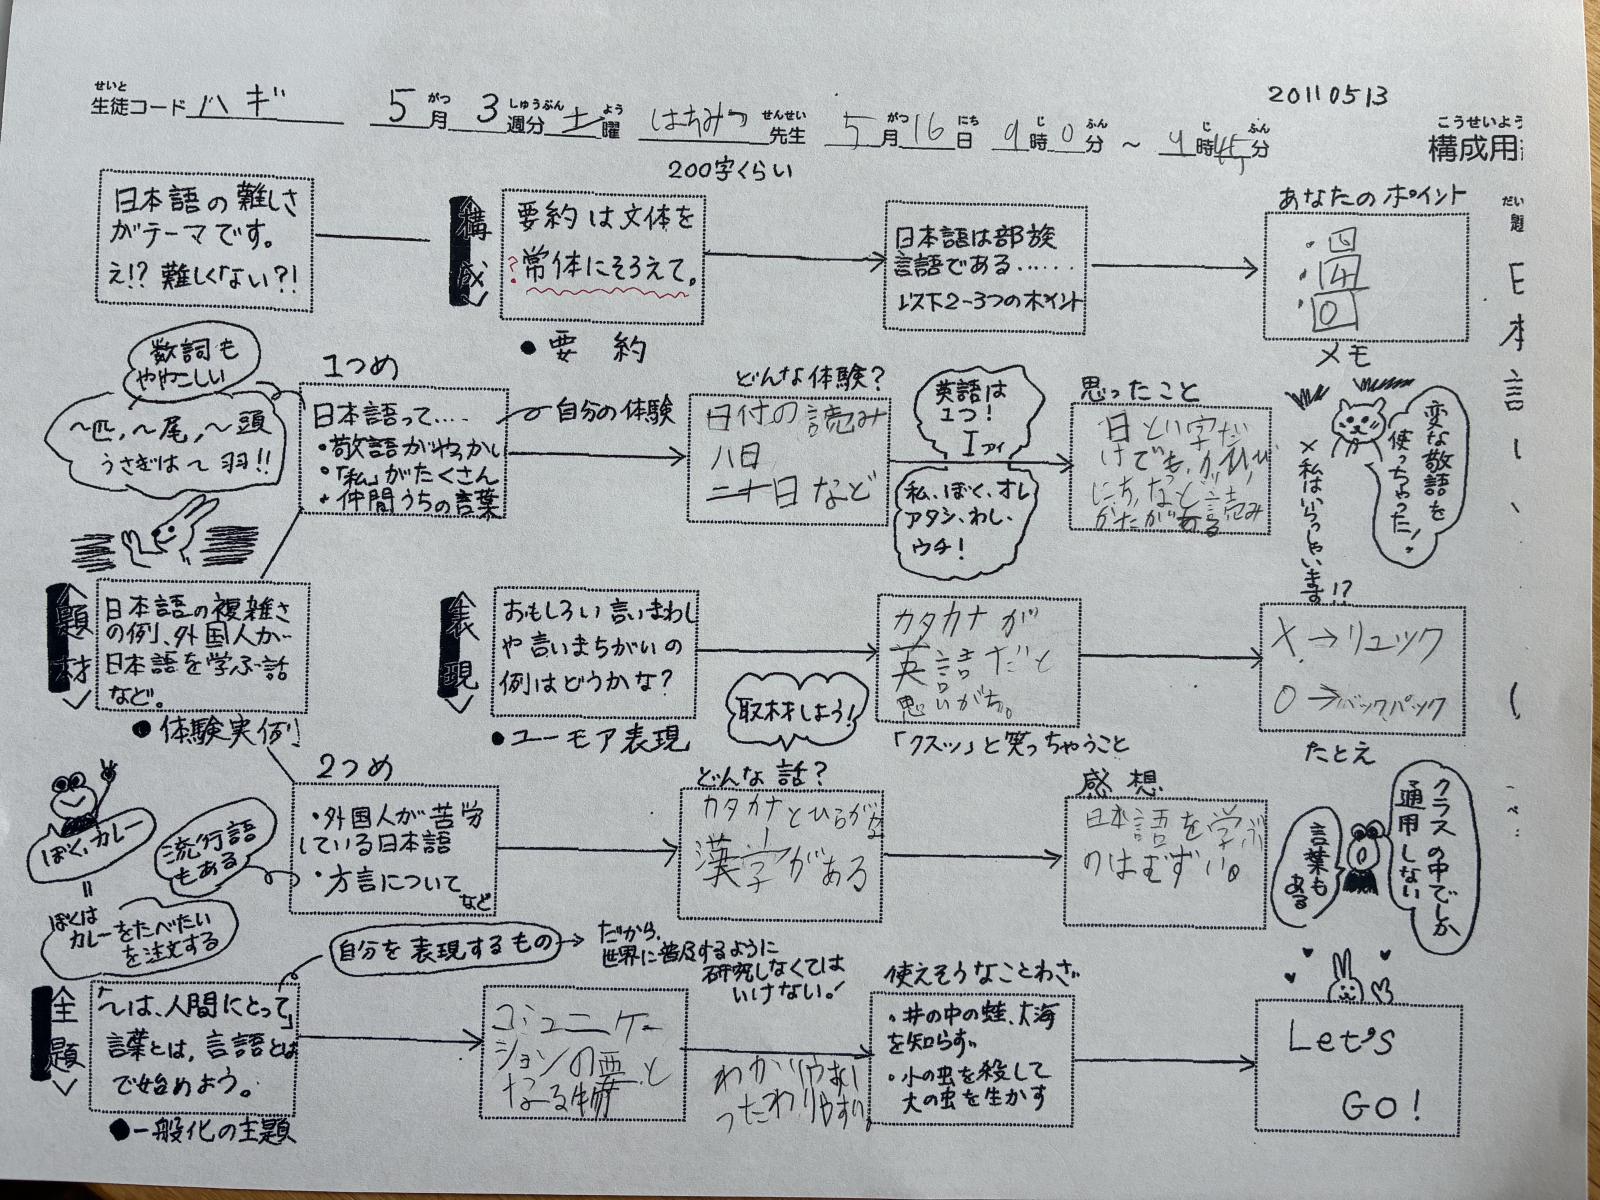 せいと がつ しゅうぶん よう せんせい がつ にち じ ふん じ ふん
生徒コード ハギ 5月 3週分 土曜 はちみつ先生 5月16日 9時0分 ～ 9時45分
20110513
こうせいよう
構成用
200字くらい
日本語の難しさ
がテーマです。
え!? 難しくない?!
構成
要約は文体を
?常体にそろえて。
●要約
日本語は部族
言語である……
以下2-3つのポイント
あなたのポイント
・四
・4
・0
メモ
だい
題
日本語
数詞も
ややこしい
～匹,～尾,～頭
うさぎは～羽!!
1つめ
日本語って‥‥
・敬語がやっかい
・「私」がたくさん
・仲間うちの言葉
自分の体験
どんな体験?
日付の読み
八日
二十日など
英語は
1つ!
I アイ
私、ぼく、オレ
アタシ、わし、
ウチ!
思ったこと
日という字だ
けでも、か,ひ,び,
にち,など、読み
かたがある
変な敬語を
使っちゃった!
×私はいらっしゃいます!?
題材
日本語の複雑さ
の例、外国人が
日本語を学ぶ話
など。
●体験実例
表現
おもしろい言いまわし
や言いまちがいの
例はどうかな?
●ユーモア表現
取材しよう!
カタカナが
英語だと
思いがち。
「クスッ」と笑っちゃうこと
X→リュック
O→バックパック
たとえ
ぼく、カレー
=
ぼくは
カレーをたべたい
を注文する
流行語
もある
2つめ
・外国人が苦労
している日本語
・方言について
など
どんな話?
カタカナとひらがな
漢字がある
感想
日本語を学ぶ
のはむずい。
クラスの中でしか
通用しない
言葉も
ある
全題
「～は、人間にとって」
言葉とは、言語とは
で始めよう。
●一般化の主題
自分を表現するもの→
だから、
世界に普及するように
研究しなくては
いけない。!
コミュニケー
ションの要と
なる物
わかりやすい
つたわりやすい。
使えそうなことわざ
・井の中の蛙、大海
を知らず。
・小の虫を殺して
大の虫を生かす
Let's
GO!